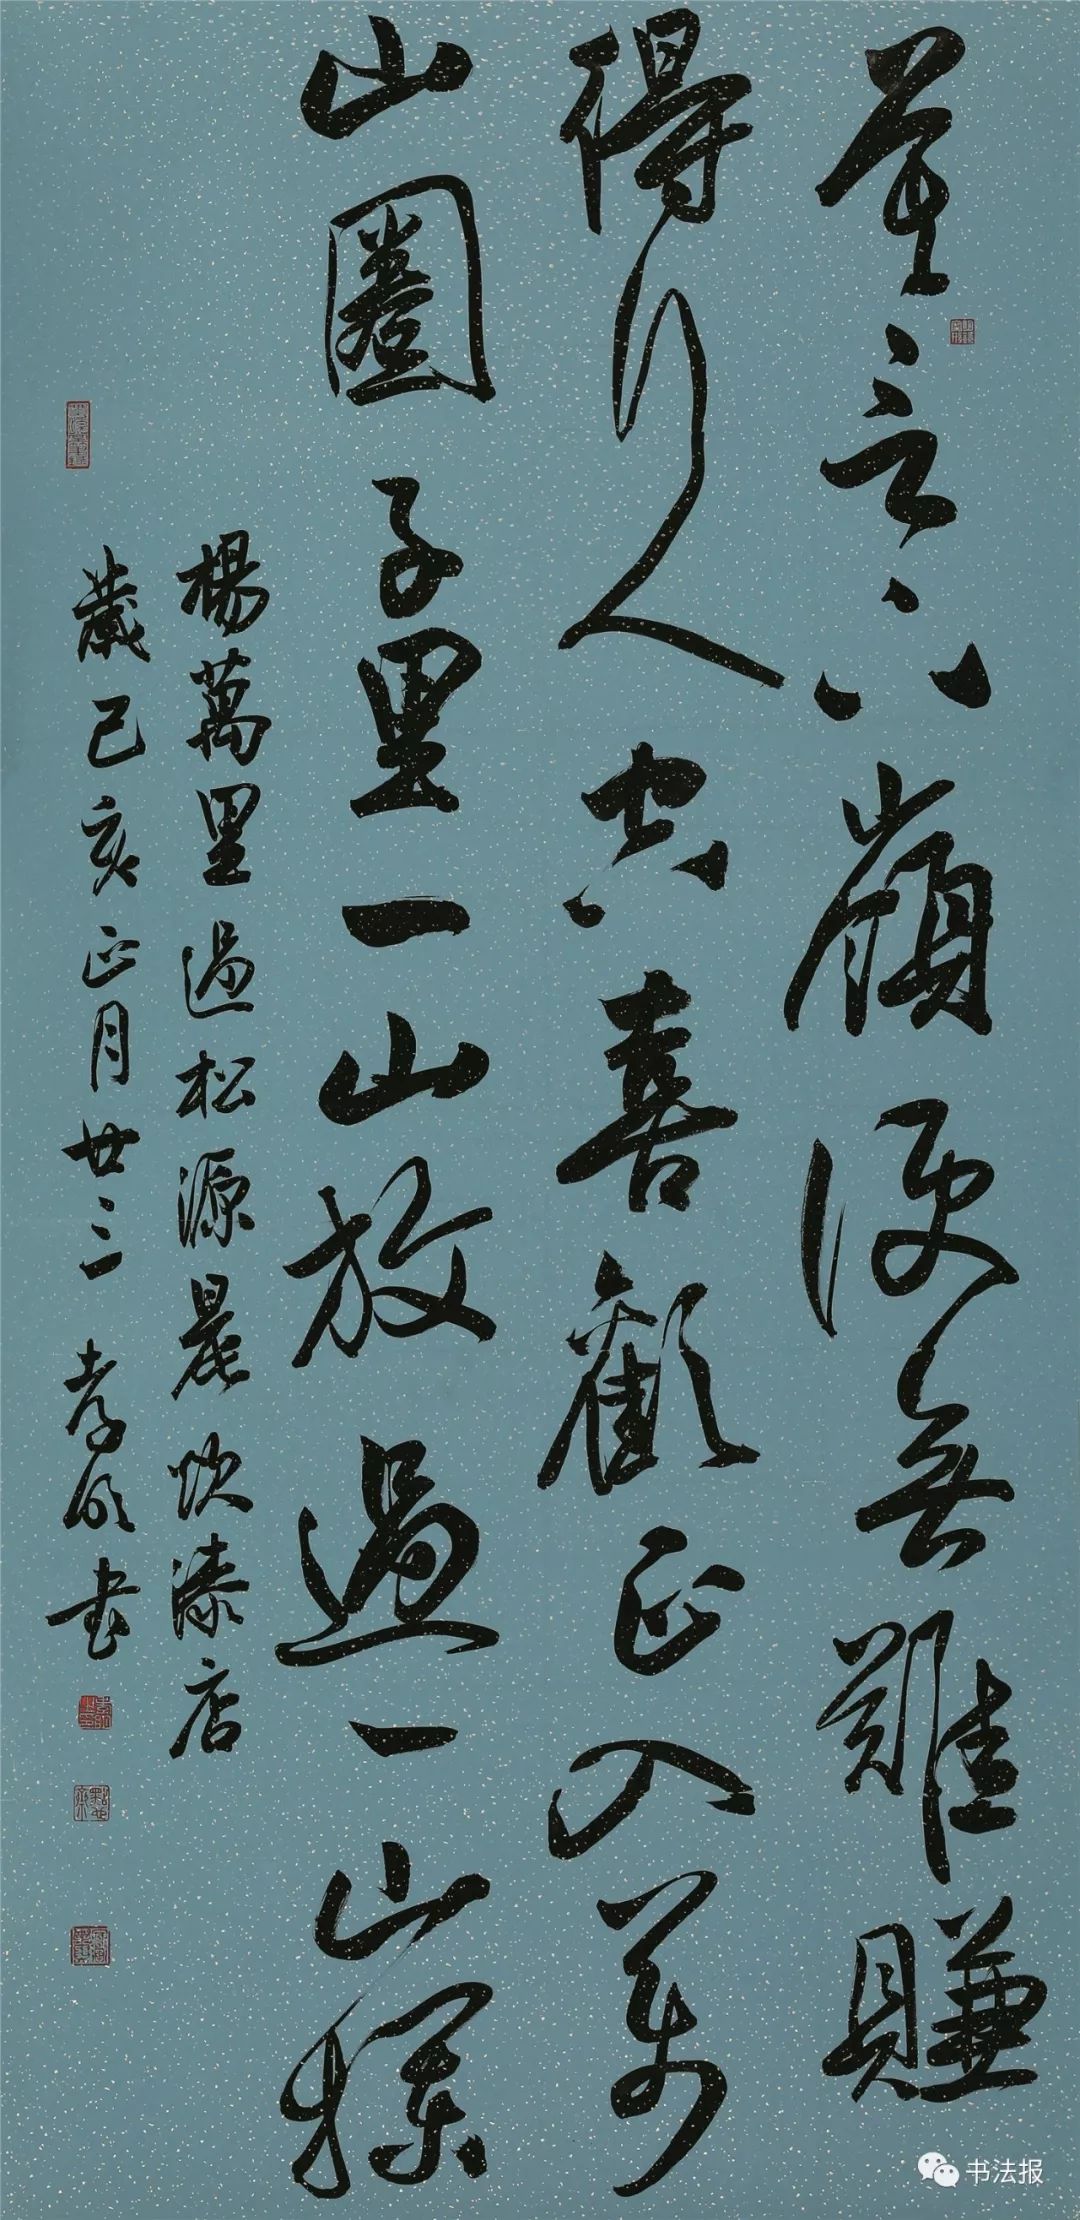 莫言下嶺便無難賺
得行人空喜歡正入萬
山圈子里一山放過一山攔
楊萬里過松源晨炊漆店
歲己亥正月廿三 孝書
书法报